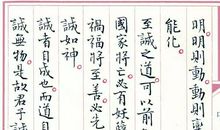 明明則動動則
能化
至誠之道可以前
國家將亡必有妖
禍福將至善必先
誠如神
誠者自成也而道自
誠無物是故君子誠